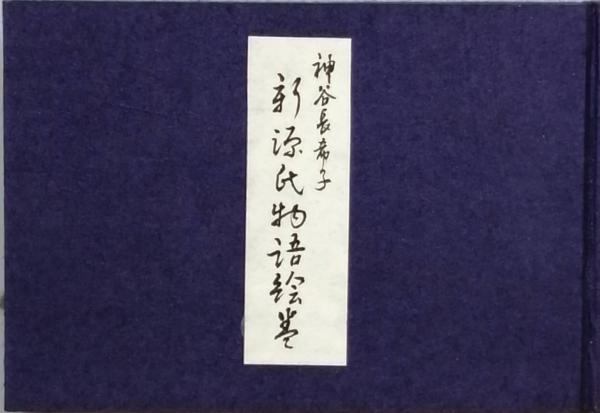 神谷長希子
新源氏物語絵巻